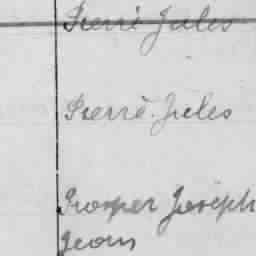 Pierre Jules
Pierre Jules
Prosper Joseph
Jean